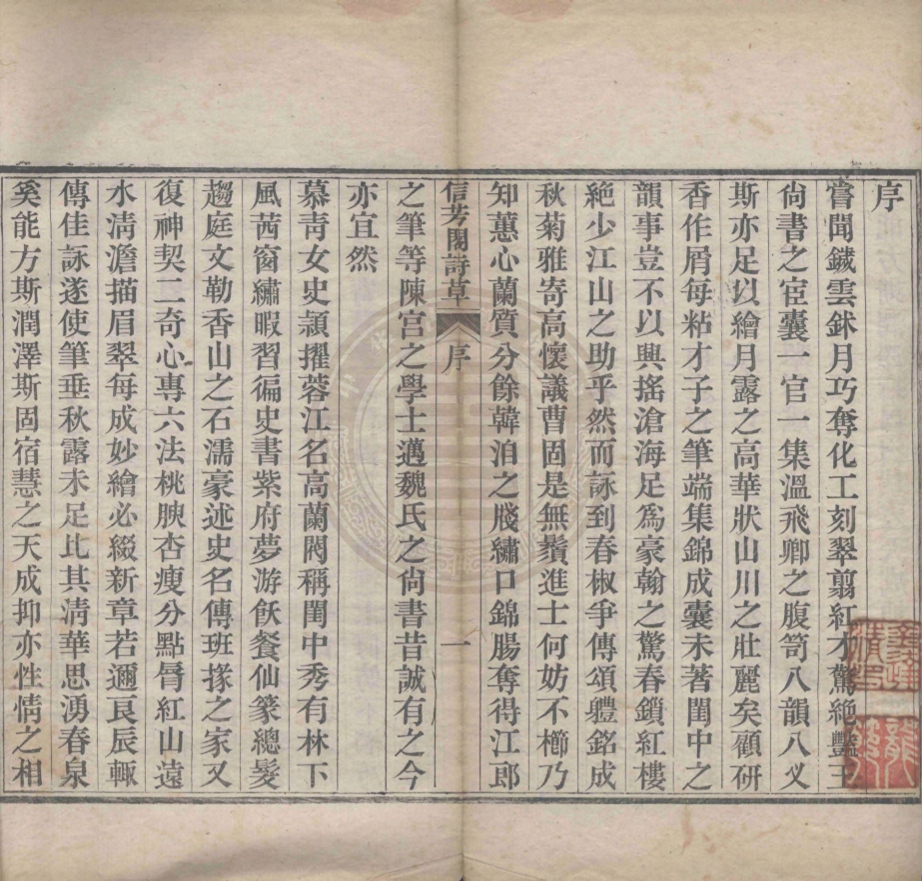 序
嘗聞鏤雲鉥月巧奪化工刻翠翦紅才驚絶豔王
尙書之宦囊一官一集溫飛卿之腹笥八韻八乂
斯亦足㠯繪月露之高華狀山川之壯麗矣顧硏
香作屑每粘才子之筆端集錦成囊未著閨中之
韻事豈不以興搖滄海足爲豪翰之驚春鎖紅樓
絶少江山之助乎然而詠到春椒爭傳頌軆銘成
秋菊雅寄高懷議曹固是無鬚進士何妨不櫛乃
知蕙心蘭質分餘韓洎之牋繡口錦腸奪得江郎
信芳閣詩草 序 一
之筆等陳宮之學士邁魏氏之尙書昔誠有之今
亦宜然
慕靑女史頴擢蓉江名高蘭閥稱閨中秀有林下
風茜窗繡暇習徧史書紫府夢游飫餐仙篆總髮
趨庭文勒香山之石濡豪述史名傳班掾之家又
復神契二奇心專六法桃腴杏瘦分點脣紅山遠
水淸澹描眉翠每成妙繪必綴新章若邇良辰輒
傳佳詠遂使筆垂秋露未足比其淸華思湧春泉
奚能方斯潤澤斯固宿慧之天成抑亦性情之相